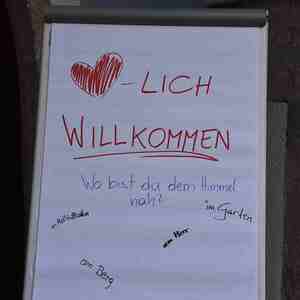 - LICH
WILLKOMMEN
Wo bist du dem Himmel
nah?
im Garten
am Meer
am Berg